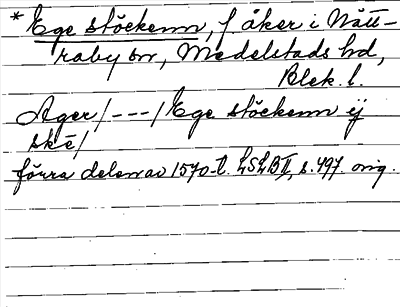 * Ege stöckenn, f åker i Nätt-
raby sn, Medelstads hd,
Blek. l.
Ager /---/ Ege stöckenn ij
skē/
förra delen av 1570-t. LSLB II, s. 497. orig.